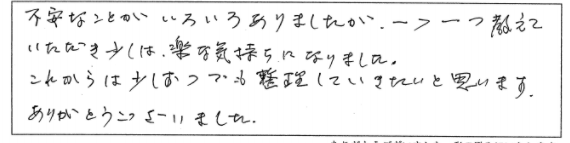 不安なことがいろいろありましたが、一つ一つ教えて
いただき少しは、楽な気持ちになりました。
これからは少しずつでも整理していきたいと思います。
ありがとうございました。